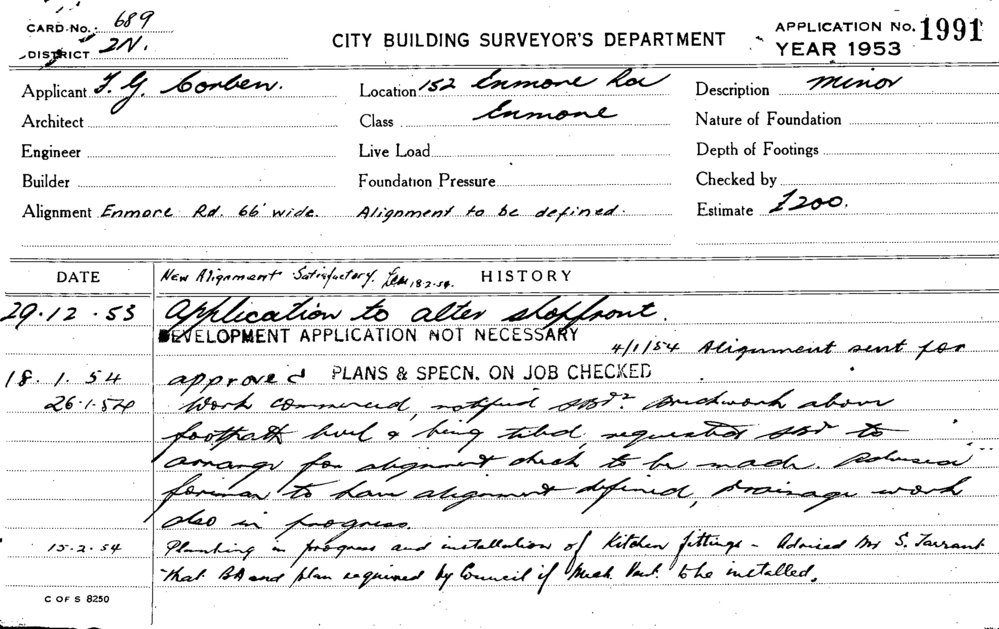 CARD No. 689
DISTRICT 2N.
CITY BUILDING SURVEYOR'S DEPARTMENT
APPLICATION No. 1991
YEAR 1953
Applicant F. G. Corben.
Location 152 Enmore Rd
Description Minor
Architect
Class Enmore
Nature of Foundation
Engineer
Live Load
Depth of Footings
Builder
Foundation Pressure
Checked by
Alignment Enmore Rd. 66' wide. Alignment to be defined.
Estimate £200.
DATE
New Alignment Satisfactory. 18.2.54.
HISTORY
29.12.53 Application to alter shopfront.
DEVELOPMENT APPLICATION NOT NECESSARY
4/1/54 Alignment sent for
18.1.54 approved PLANS & SPECN. ON JOB CHECKED
26.1.54 Work commenced, notified Brickwork above
footpath level & being tiled, requested to
arrange for alignment check to be made. Advised
foreman to have alignment defined, Drainage work
also in progress.
15.2.54 Plumbing in progress and installation of Kitchen fittings - Advised Mr S. Tarrant
that BA and plan required by Council if Mech. Vent. to be installed.
C OF S 8250